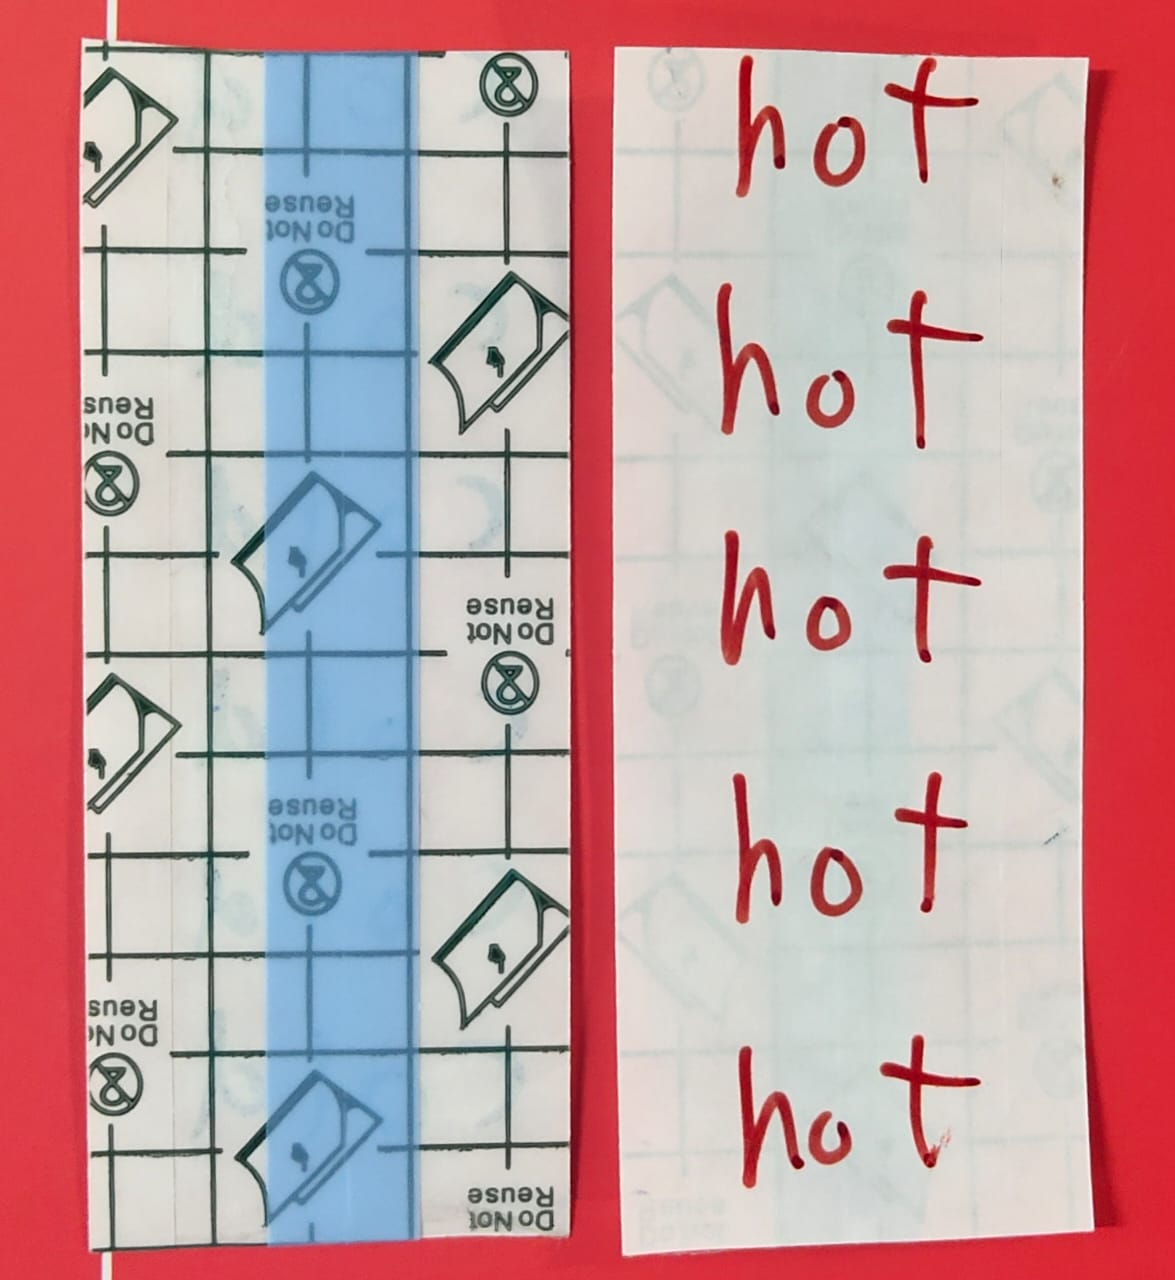 Reuse
Do Not
Reus
Do No
Reuse
Do Not
Reuse
Do Not
Reus
Do No
Reuse
Do Not
hot
hot
hot
hot
hot